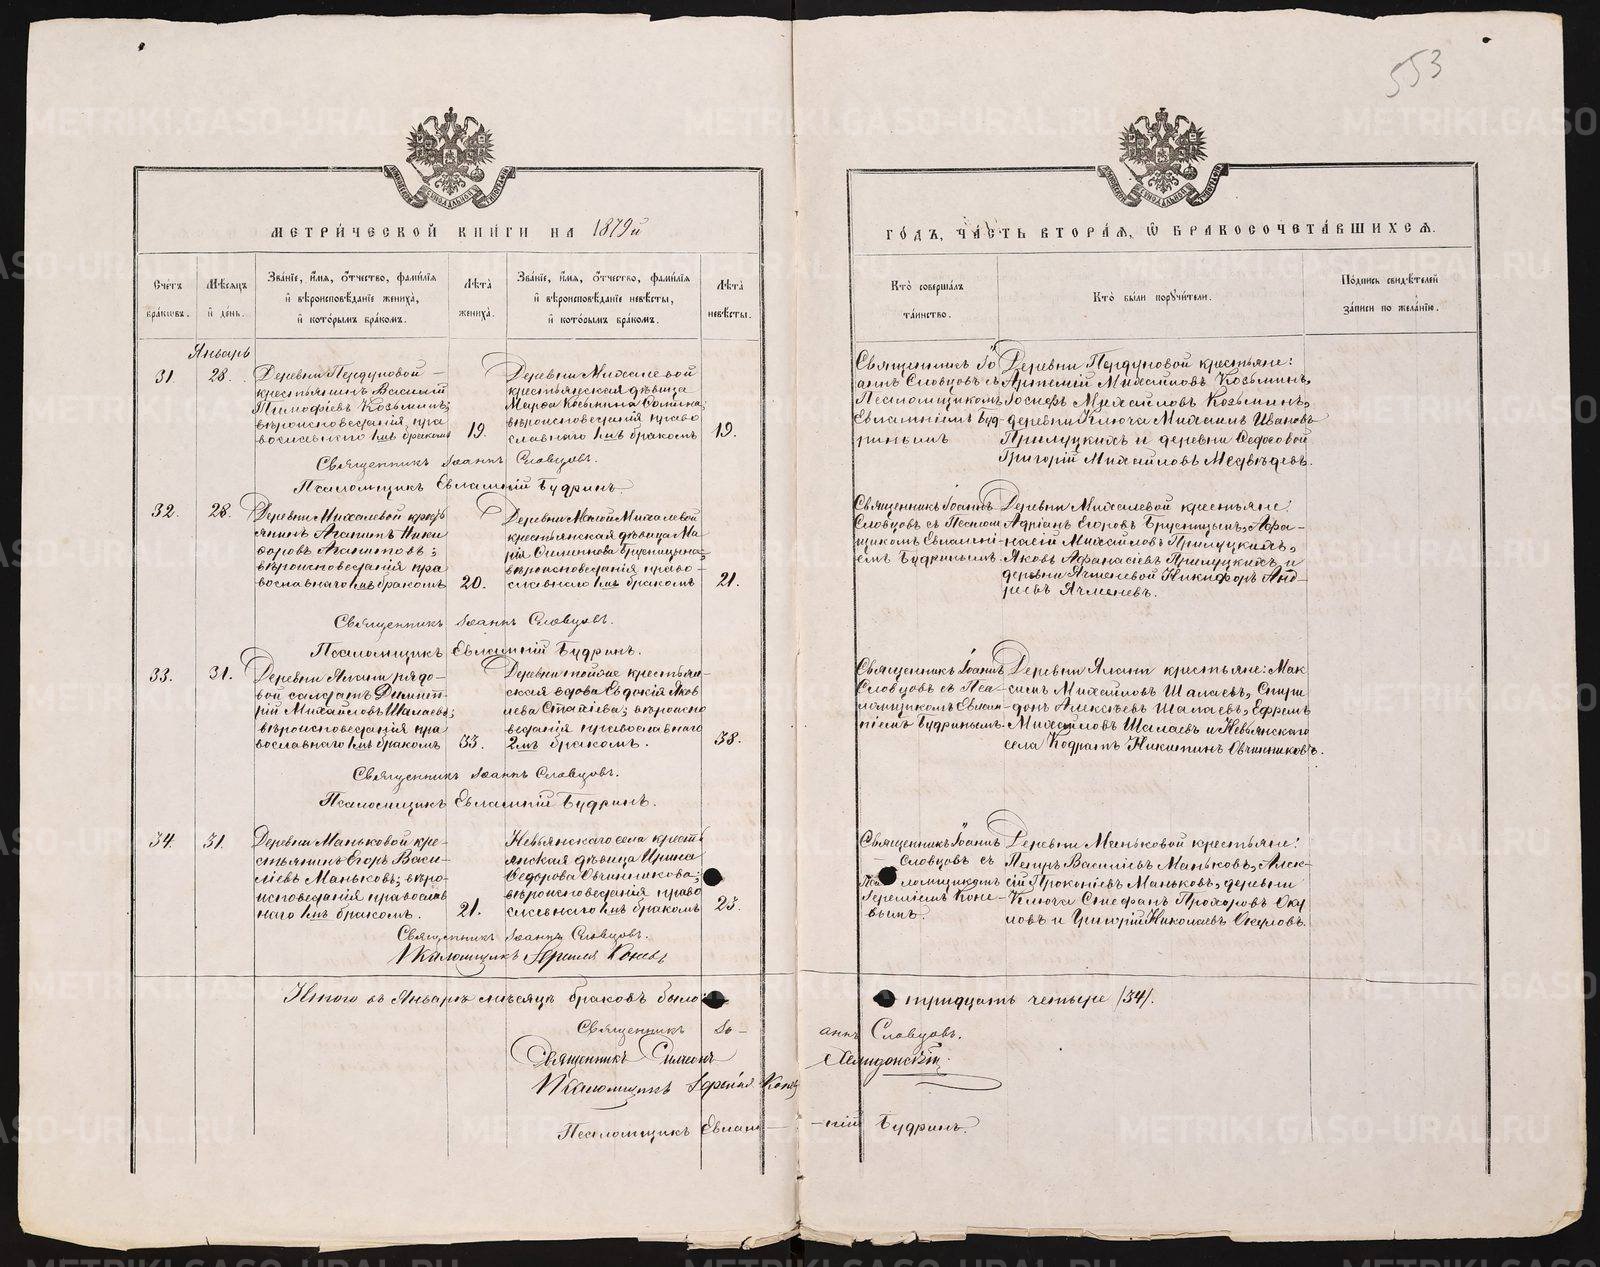 553
МЕТРИ́ЧЕСКОЙ КНИ́ГИ НА 1879й
ГО́ДЪ, ЧА́СТЬ ВТОРА́Я, Ѡ БРАКОСОЧЕТА́ВШИХСЯ.
Сче́тъ бра́ковъ.
Мѣ́сяцъ й де́нь.
Зва́нїе, и́мя, о́тчество, фами́лїя й вѣроисповѣ́данїе жениха̀, й кото́рымъ бра́комъ.
Лѣ́та жениха̀.
Зва́нїе, и́мя, о́тчество, фами́лїя й вѣроисповѣ́данїе невѣ́сты, й кото́рымъ бра́комъ.
Лѣ́та невѣ́сты.
Кто̀ соверша́лъ та́инство.
Кто̀ бы́ли поручи́тели.
По́дпись свидѣ́телей за́писи по жела́нїю.
Январь
31.
28.
Деревни Пердуновой
крестьянинъ Василій
Тимофіевъ Козьминъ;
вѣроисповеданія пра
вославнаго 1мъ бракомъ
19.
Деревни Михалевой
крестьянская дѣвица
Марѳа Козьмина
вѣроисповеданія право
славнаго 1мъ бракомъ
19.
Священникъ Іо
аннъ Словцовъ съ
Псаломщикомъ
Евлампіемъ Буд-
ринымъ
Деревни Пердуновой крестьяне:
Артемій Михайловъ Козьминъ,
Іосифъ Михайловъ Козьминъ,
деревни Ключа Михаилъ Ивановъ
Прилуцкихъ и деревни Федосовой
Григорій Михайловъ Медвѣдевъ.
Священникъ Іоаннъ Словцовъ.
Псаломщикъ Евлампій Будринъ.
32.
28.
Деревни Михалевой крест
янинъ Агапитъ Ники
форовъ Агапитовъ;
вѣроисповеданія пра
вославнаго 1мъ бракомъ
20.
Деревни Малой Михалевой
крестьянская дѣвица Ма
рія Симеонова Брусницына;
вѣроисповеданія право-
славнаго 1мъ бракомъ
21.
Священникъ Іоаннъ
Словцовъ съ Псалом
щикомъ Евлампі-
емъ Будринымъ
Деревни Михалевой крестьяне:
Адріанъ Егоровъ Брусницынъ, Афа-
насій Михайловъ Прилуцкихъ,
Яковъ Афанасіевъ Прилуцкихъ и
деревни Ячменевой Никифоръ Анд-
реевъ Ячменевъ.
Священникъ Іоаннъ Словцовъ.
Псаломщикъ Евлампій Будринъ.
33.
31.
Деревни Ялани рядо-
вой солдатъ Димит-
рій Михайловъ Шалаевъ;
вѣроисповеданія пра
вославнаго 1мъ бракомъ
33.
Деревни тойже крестьян-
ская вдова Евдокія Яков
лева; вѣроиспо
веданія православнаго
2мъ бракомъ.
38.
Священникъ Іоаннъ
Словцовъ съ Пса-
ломщикомъ Евлам-
піемъ Будринымъ.
Деревни Ялани крестьяне: Мак
симъ Михайловъ Шалаевъ, Спири
донъ Алексѣевъ Шалаевъ, Ефремъ
Михайловъ Шалаевъ и Невьянскаго
села Кодратъ Никитинъ Овчинниковъ.
Священникъ Іоаннъ Словцовъ.
Псаломщикъ Евлампій Будринъ.
34.
31.
Деревни Маньковой кре-
стьянинъ Егоръ Васи-
ліевъ Маньковъ; вѣро-
исповеданія православ
наго 1мъ бракомъ.
21.
Невьянскаго села кресть
янская дѣвица Ирина
Федорова Овчинникова;
вѣроисповеданія право
славнаго 1мъ бракомъ
23.
Священникъ Іоаннъ
Словцовъ съ
Псаломщикомъ
Іереміемъ Коне-
вымъ
Деревни Маньковой крестьяне:
Петръ Василіевъ Маньковъ, Алек-
сій Прокопіевъ Маньковъ, деревни
Ключа Стефанъ Прохоровъ Оку
ловъ и Григорій Николаевъ Окуловъ.
Священникъ Іоаннъ Словцовъ.
Псаломщикъ Іеремія Коневъ
Итого въ Январѣ мѣсяцѣ браковъ было тридцать четыре /34/.
Священникъ Іоаннъ Словцовъ.
Священникъ Симеонъ
Псаломщикъ Іеремія Коневъ
Псаломщикъ Евлампій Будринъ.
METRIKI.GASO-URAL.RU